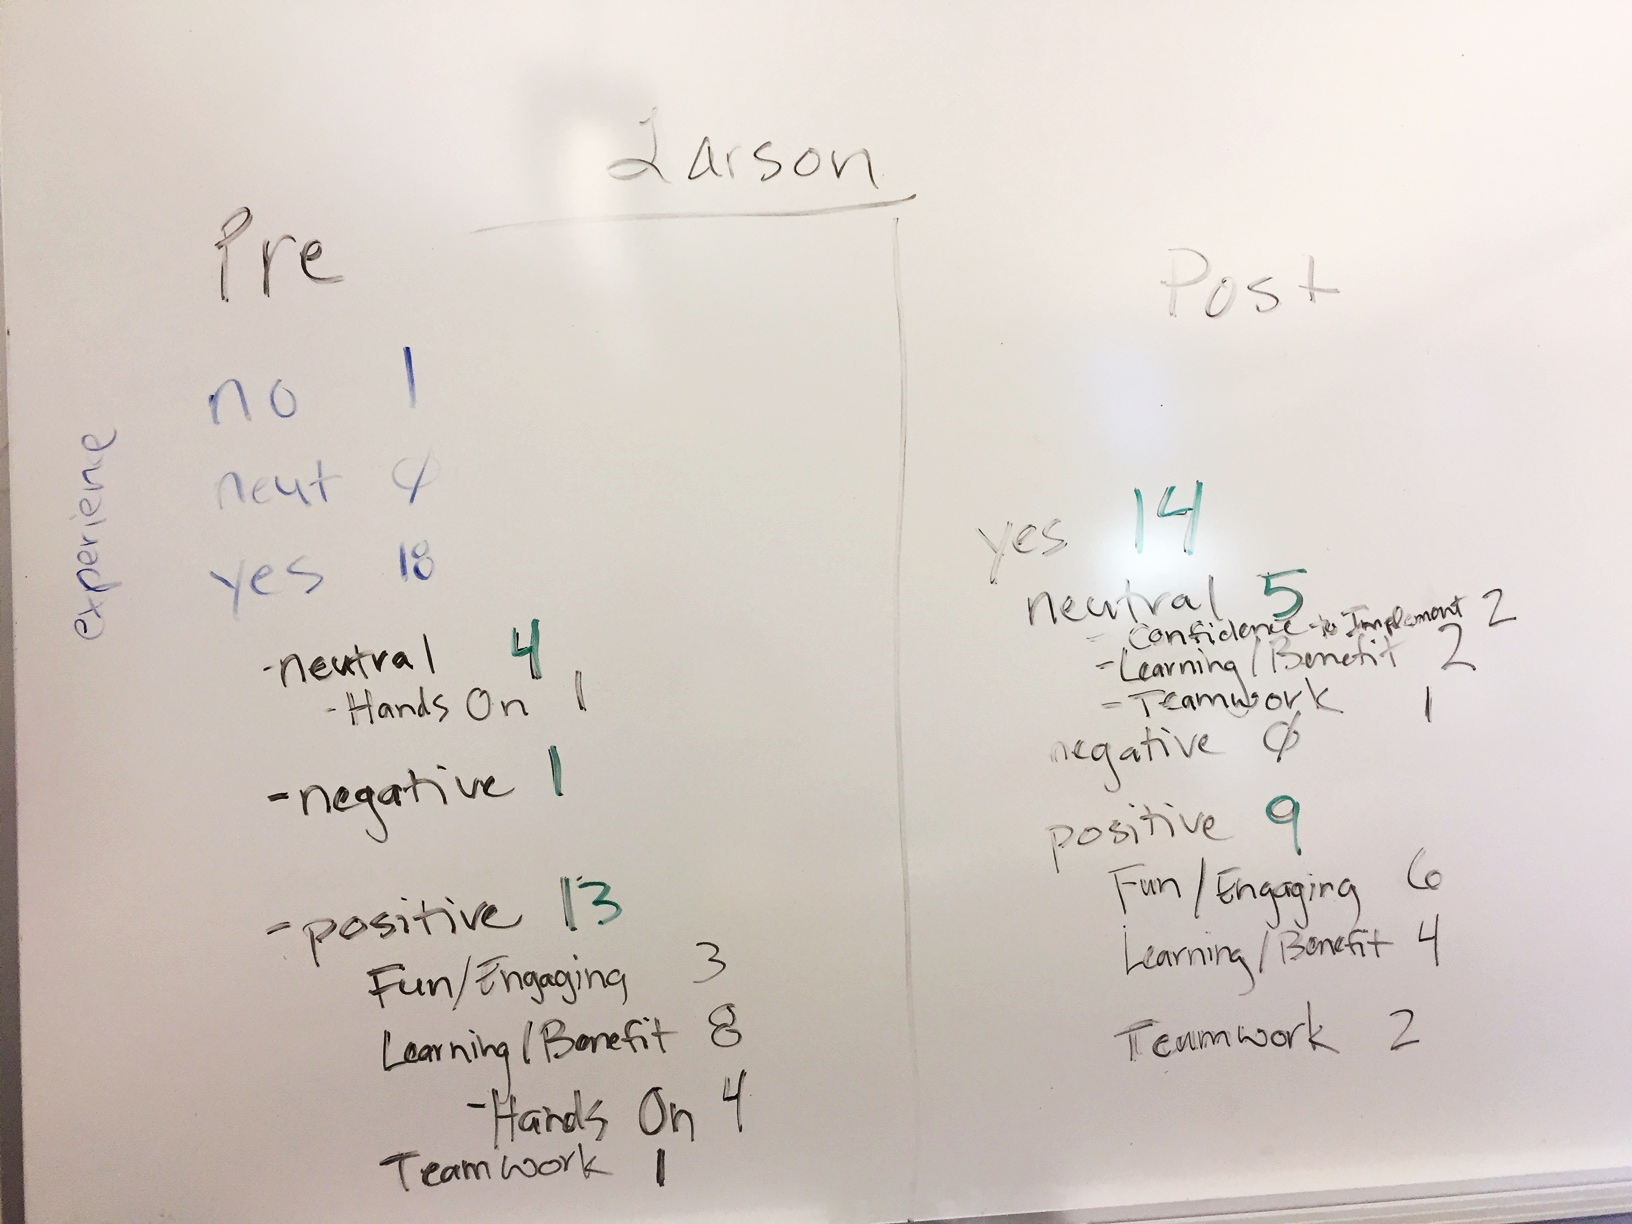 Larson
Pre
experience
no 1
neut Ø
yes 18
-neutral 4
-Hands On 1
-negative 1
-positive 13
Fun/Engaging 3
Learning/Benefit 8
-Hands On 4
Teamwork 1
Post
yes 14
neutral 5
- Confidence to Implement 2
-Learning/Benefit 2
-Teamwork 1
negative Ø
positive 9
Fun/Engaging 6
Learning/Benefit 4
Teamwork 2